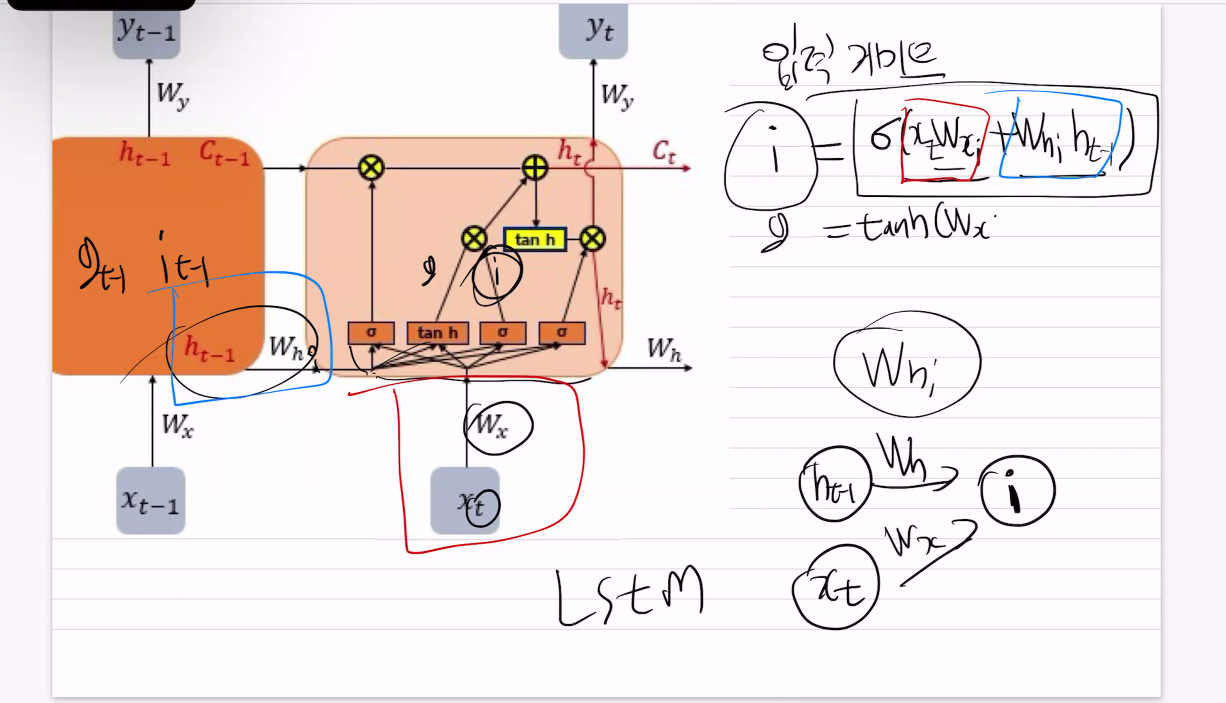 y_{t-1}
y_t
W_y
W_y
h_{t-1} C_{t-1}
h_t C_t
g_{t-1} i_{t-1}
g i
tan h
h_t
h_{t-1} W_h
σ tan h σ σ
W_h
W_x
W_x
x_{t-1}
x_t
LSTM
입력 게이트
i = σ(x_t W_{xi} + W_{hi} h_{t-1})
g = tanh(W_x
W_{hi}
h_{t-1} W_h i
W_x
x_t